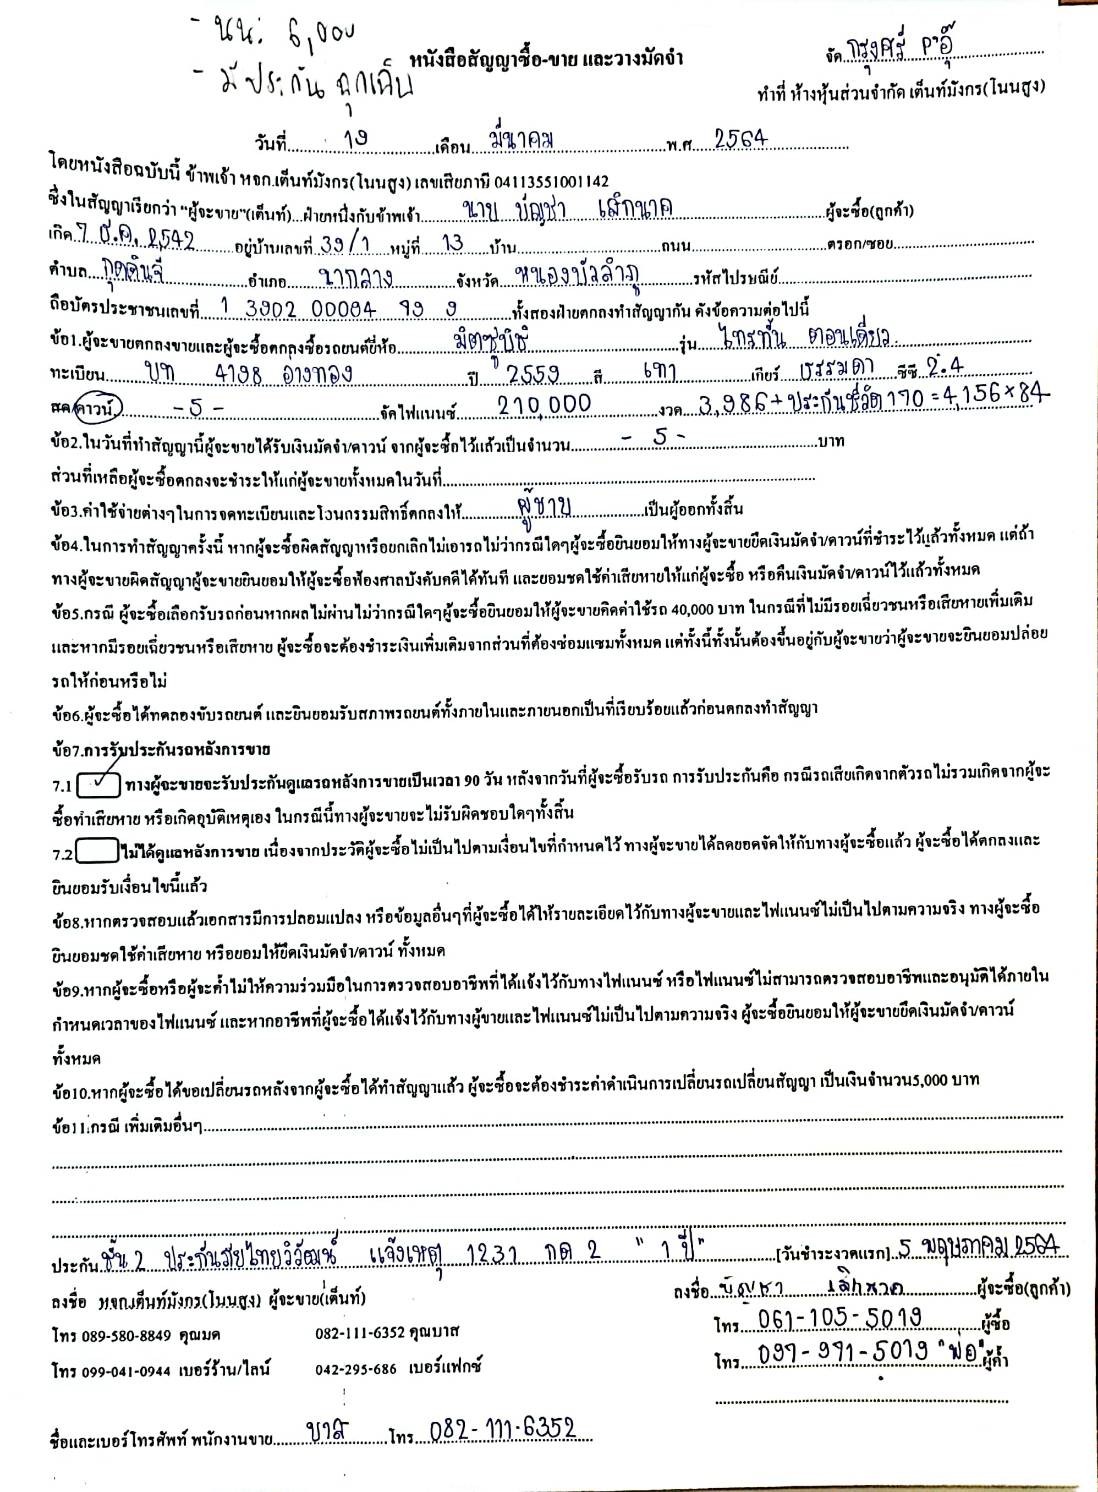 - นน: 6,000
- มีประกัน ฉุกเฉิน
หนังสือสัญญาซื้อ-ขาย และวางมัดจำ
จัด กรุงศรี P'อุ๊
ทำที่ ห้างหุ้นส่วนจำกัด เต็นท์มังกร(โนนสูง)
วันที่ 19 เดือน มีนาคม พ.ศ. 2564
โดยหนังสือฉบับนี้ ข้าพเจ้า หจก.เต็นท์มังกร(โนนสูง) เลขเสียภาษี 04113551001142
ซึ่งในสัญญาเรียกว่า "ผู้จะขาย"(เต็นท์)...ฝ่ายหนึ่งกับข้าพเจ้า นาย บัญชา เล็กนาค ผู้จะซื้อ(ลูกค้า)
เกิด 7 ธ.ค. 2542 อยู่บ้านเลขที่ 39/1 หมู่ที่ 13 บ้าน ถนน ตรอก/ซอย
ตำบล กุดดินจี่ อำเภอ นากลาง จังหวัด หนองบัวลำภู รหัสไปรษณีย์
ถือบัตรประชาชนเลขที่ 1 3902 00094 ทั้งสองฝ่ายตกลงทำสัญญากัน ดังข้อความต่อไปนี้
ข้อ1.ผู้จะขายตกลงขายและผู้จะซื้อตกลงซื้อรถยนต์ยี่ห้อ มิตซูบิชิ รุ่น ไทรทั้น ตอนเดี่ยว
ทะเบียน บท 4198 อ่างทอง ปี 2559 สี เทา เกียร์ ธรรมดา ซีซี 2.4
สด/ดาวน์ -5- จัดไฟแนนซ์ 210,000 งวด 3,986 + ประกันชีวิต 170 = 4,156 × 84
ข้อ2.ในวันที่ทำสัญญานี้ผู้จะขายได้รับเงินมัดจำ/ดาวน์ จากผู้จะซื้อไว้แล้วเป็นจำนวน -5- บาท
ส่วนที่เหลือผู้จะซื้อตกลงจะชำระให้แก่ผู้จะขายทั้งหมดในวันที่
ข้อ3.ค่าใช้จ่ายต่างๆในการจดทะเบียนและโอนกรรมสิทธิ์ตกลงให้ ผู้ขาย เป็นผู้ออกทั้งสิ้น
ข้อ4.ในการทำสัญญาครั้งนี้ หากผู้จะซื้อผิดสัญญาหรือยกเลิกไม่เอารถไม่ว่ากรณีใดๆผู้จะซื้อยินยอมให้ทางผู้จะขายยึดเงินมัดจำ/ดาวน์ที่ชำระไว้แล้วทั้งหมด แต่ถ้า
ทางผู้จะขายผิดสัญญาผู้จะขายยินยอมให้ผู้จะซื้อฟ้องศาลบังคับคดีได้ทันที และยอมชดใช้ค่าเสียหายให้แก่ผู้จะซื้อ หรือคืนเงินมัดจำ/ดาวน์ไว้แล้วทั้งหมด
ข้อ5.กรณี ผู้จะซื้อเลือกรับรถก่อนหากผลไม่ผ่านไม่ว่ากรณีใดๆผู้จะซื้อยินยอมให้ผู้จะขายคิดค่าใช้รถ 40,000 บาท ในกรณีที่ไม่มีรอยเฉี่ยวชนหรือเสียหายเพิ่มเติม
และหากมีรอยเฉี่ยวชนหรือเสียหาย ผู้จะซื้อจะต้องชำระเงินเพิ่มเติมจากส่วนที่ต้องซ่อมแซมทั้งหมด แต่ทั้งนี้ทั้งนั้นต้องขึ้นอยู่กับผู้จะขายว่าผู้จะขายจะยินยอมปล่อย
รถให้ก่อนหรือไม่
ข้อ6.ผู้จะซื้อได้ทดลองขับรถยนต์ และยินยอมรับสภาพรถยนต์ทั้งภายในและภายนอกเป็นที่เรียบร้อยแล้วก่อนตกลงทำสัญญา
ข้อ7.การรับประกันรถหลังการขาย
7.1 ✓ ทางผู้จะขายจะรับประกันดูแลรถหลังการขายเป็นเวลา 90 วัน หลังจากวันที่ผู้จะซื้อรับรถ การรับประกันคือ กรณีรถเสียเกิดจากตัวรถไม่รวมเกิดจากผู้จะ
ซื้อทำเสียหาย หรือเกิดอุบัติเหตุเอง ในกรณีนี้ทางผู้จะขายจะไม่รับผิดชอบใดๆทั้งสิ้น
7.2 ไม่ได้ดูแลหลังการขาย เนื่องจากประวัติผู้จะซื้อไม่เป็นไปตามเงื่อนไขที่กำหนดไว้ ทางผู้จะขายได้ลดยอดจัดให้กับทางผู้จะซื้อแล้ว ผู้จะซื้อได้ตกลงและ
ยินยอมรับเงื่อนไขนี้แล้ว
ข้อ8.หากตรวจสอบแล้วเอกสารมีการปลอมแปลง หรือข้อมูลอื่นๆที่ผู้จะซื้อได้ให้รายละเอียดไว้กับทางผู้จะขายและไฟแนนซ์ไม่เป็นไปตามความจริง ทางผู้จะซื้อ
ยินยอมชดใช้ค่าเสียหาย หรือยอมให้ยึดเงินมัดจำ/ดาวน์ ทั้งหมด
ข้อ9.หากผู้จะซื้อหรือผู้จะค้ำไม่ให้ความร่วมมือในการตรวจสอบอาชีพที่ได้แจ้งไว้กับทางไฟแนนซ์ หรือไฟแนนซ์ไม่สามารถตรวจสอบอาชีพและอนุมัติได้ภายใน
กำหนดเวลาของไฟแนนซ์ และหากอาชีพที่ผู้จะซื้อได้แจ้งไว้กับทางผู้ขายและไฟแนนซ์ไม่เป็นไปตามความจริง ผู้จะซื้อยินยอมให้ผู้จะขายยึดเงินมัดจำ/ดาวน์
ทั้งหมด
ข้อ10.หากผู้จะซื้อได้ขอเปลี่ยนรถหลังจากผู้จะซื้อได้ทำสัญญาแล้ว ผู้จะซื้อจะต้องชำระค่าดำเนินการเปลี่ยนรถเปลี่ยนสัญญา เป็นเงินจำนวน5,000 บาท
ข้อ11.กรณี เพิ่มเติมอื่นๆ
ประกัน ชั้น 2 ประกันภัยไทยวิวัฒน์ แจ้งเหตุ 1231 กด 2 " 1 ปี " [วันชำระงวดแรก] 5 พฤษภาคม 2564
ลงชื่อ หจก.เต็นท์มังกร(โนนสูง) ผู้จะขาย(เต็นท์)
ลงชื่อ บัญชา เล็กนาค ผู้จะซื้อ(ลูกค้า)
โทร 089-580-8849 คุณมด 082-111-6352 คุณบาส
โทร 061-105-5019 ผู้ซื้อ
โทร 099-041-0944 เบอร์ร้าน/ไลน์ 042-295-686 เบอร์แฟกซ์
โทร 097-971-5019 "พ่อ" ผู้ค้ำ
ชื่อและเบอร์โทรศัพท์ พนักงานขาย บาส โทร 082-111-6352